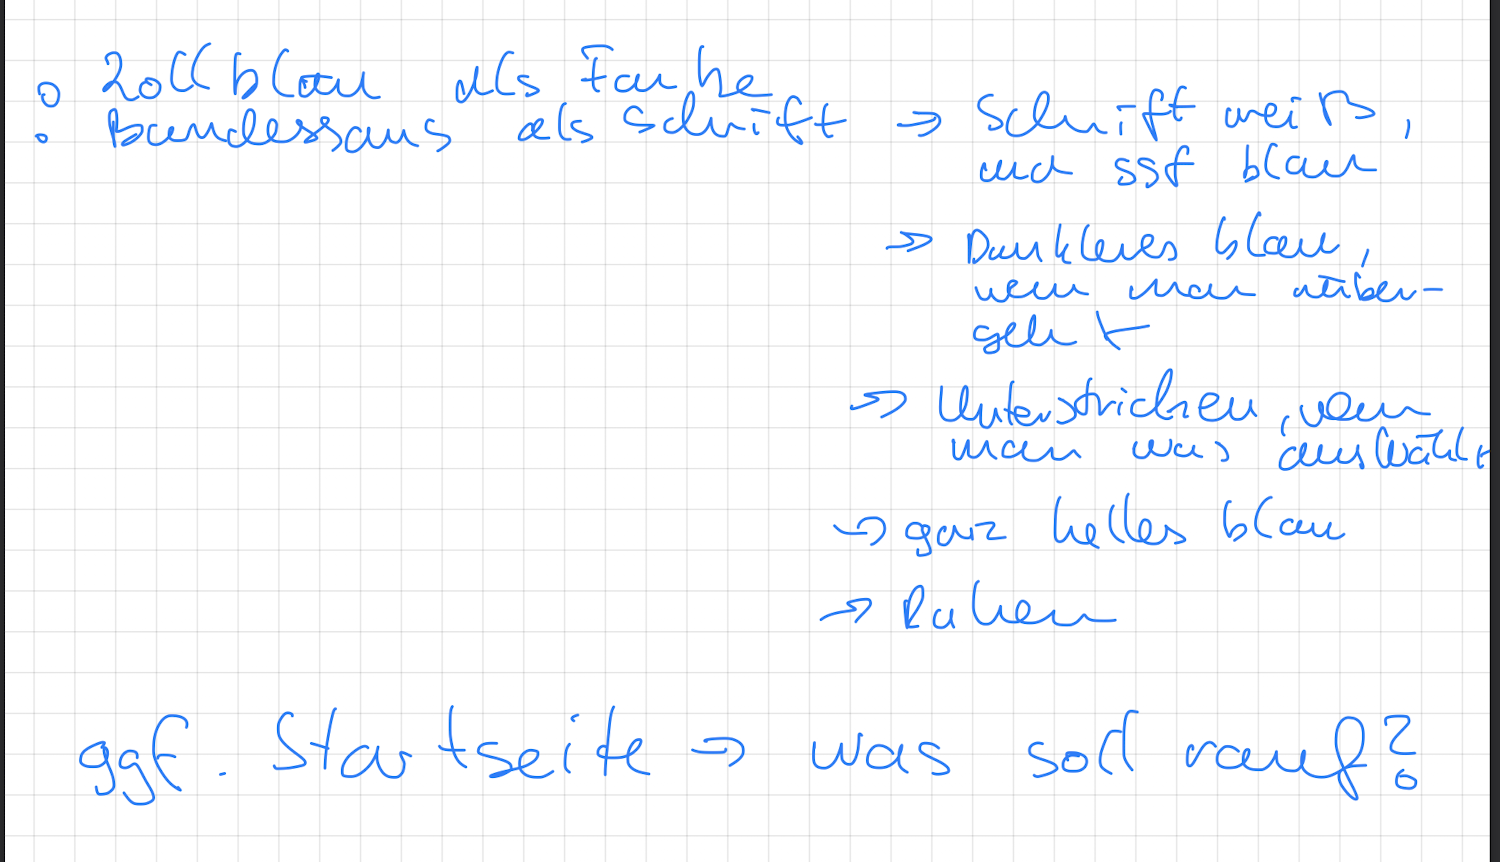 Zollblau als Farbe
Bundessans als Schrift → Schrift weiß,
und ggf blau
→ Dunkleres blau,
wenn man rüber-
geht
→ Unterstrichen, wenn
man was auswählt
→ ganz helles blau
→ Rahmen
ggf. Startseite → was soll rauf?